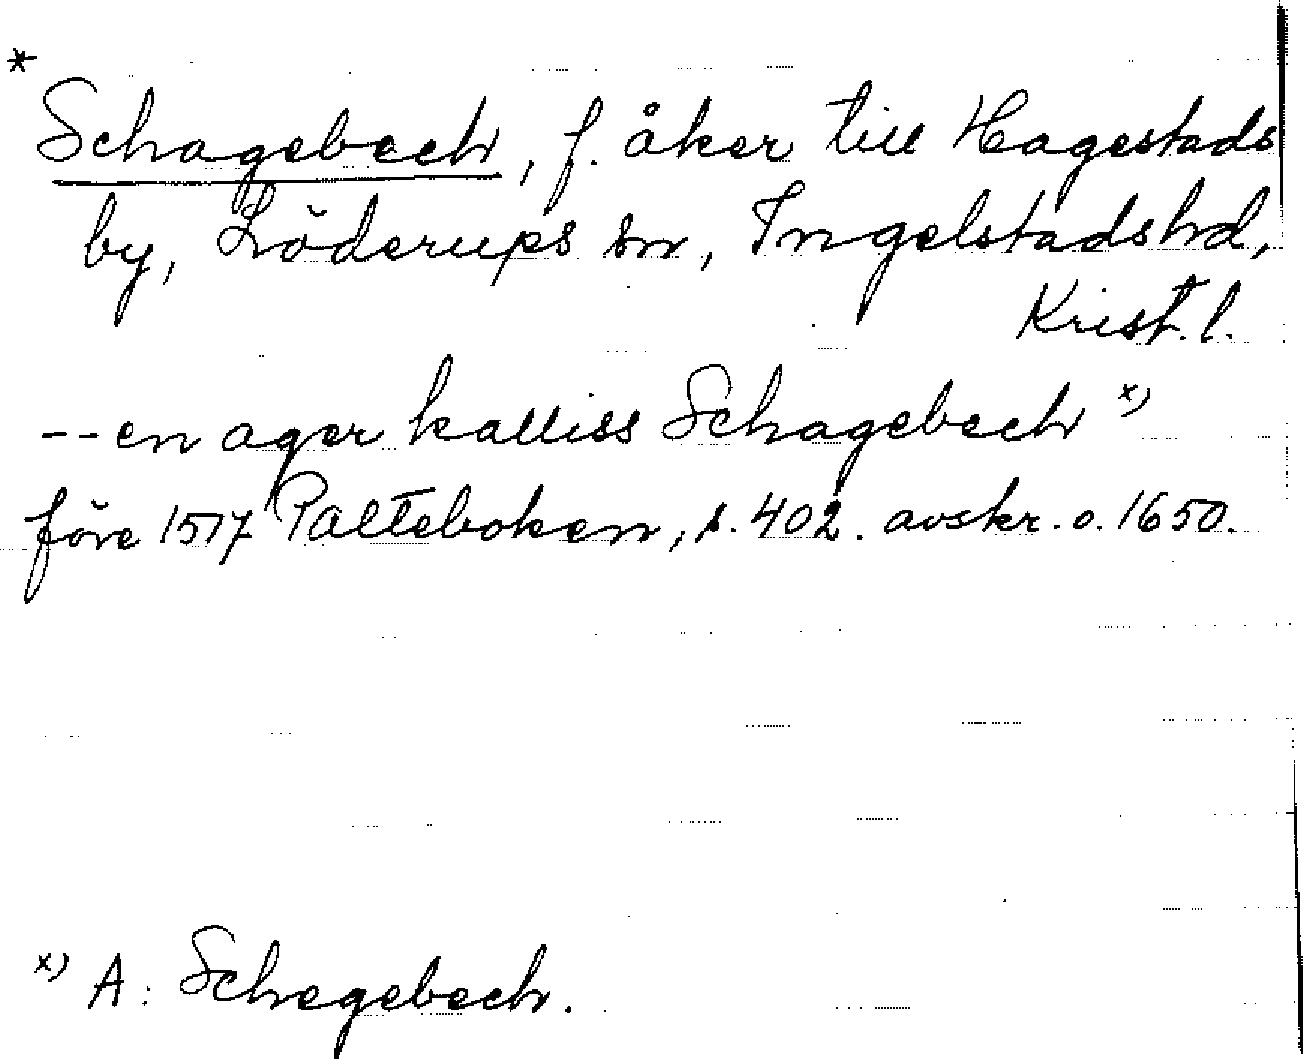 *
Schagebech, f. åker till Hagestads
by, Löderups sn, Ingelstads hd,
Krist. l.
-- en ager kalliss Schagebech x)
före 1517 Palteboken, s. 402. avskr. o. 1650.
x) A: Schegebech.